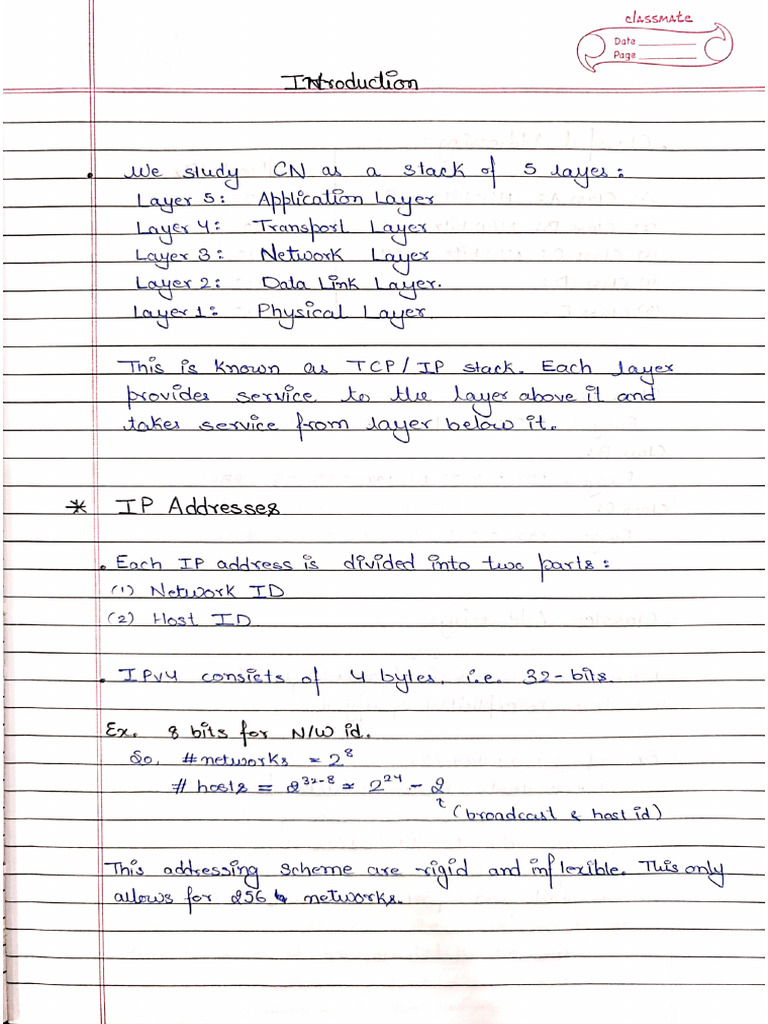 classmate
Date
Page
Introduction
• We study CN as a stack of 5 layes:
Layer 5: Application Layer
Layer 4: Transport Layer
Layer 3: Network Layer
Layer 2: Data Link Layer.
Layer 1: Physical Layer
This is known as TCP/IP stack. Each layer
provides service to the layer above it and
takes service from layer below it.
* IP Addresses
• Each IP address is divided into two parts:
(1) Network ID
(2) Host ID
• IPv4 consists of 4 bytes, i.e. 32-bits.
Ex. 8 bits for N/W id.
So, #networks = 2⁸
# hosts = 2³²⁻⁸ = 2²⁴ - 2
↑ (broadcast & host id)
This addressing scheme are rigid and inflexible. This only
allows for 256 networks.